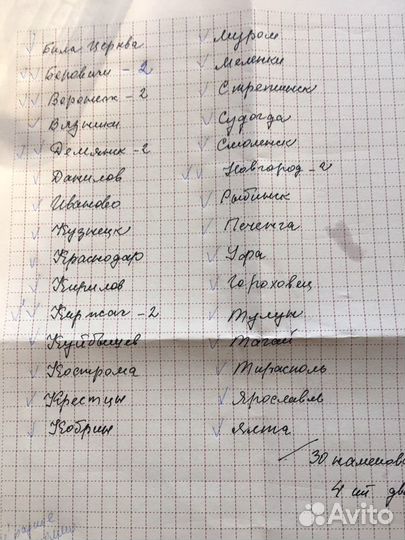 Била Церква
Боровичи - 2
Воронеж - 2
Вязники
Демянск - 2
Данилов
Иваново
Кузнецк
Краснодар
Кирилов
Киржач - 2
Куйбышев
Кострома
Крестцы
Кобрин
Муром
Меленки
Судогда
Смоленск
Новгород - 2
Рыбинск
Печенга
Уфа
Гороховец
Тулун
Тагай
Тирасполь
Ярославль
Ялта
30 наменова
4 шт дв
Avito